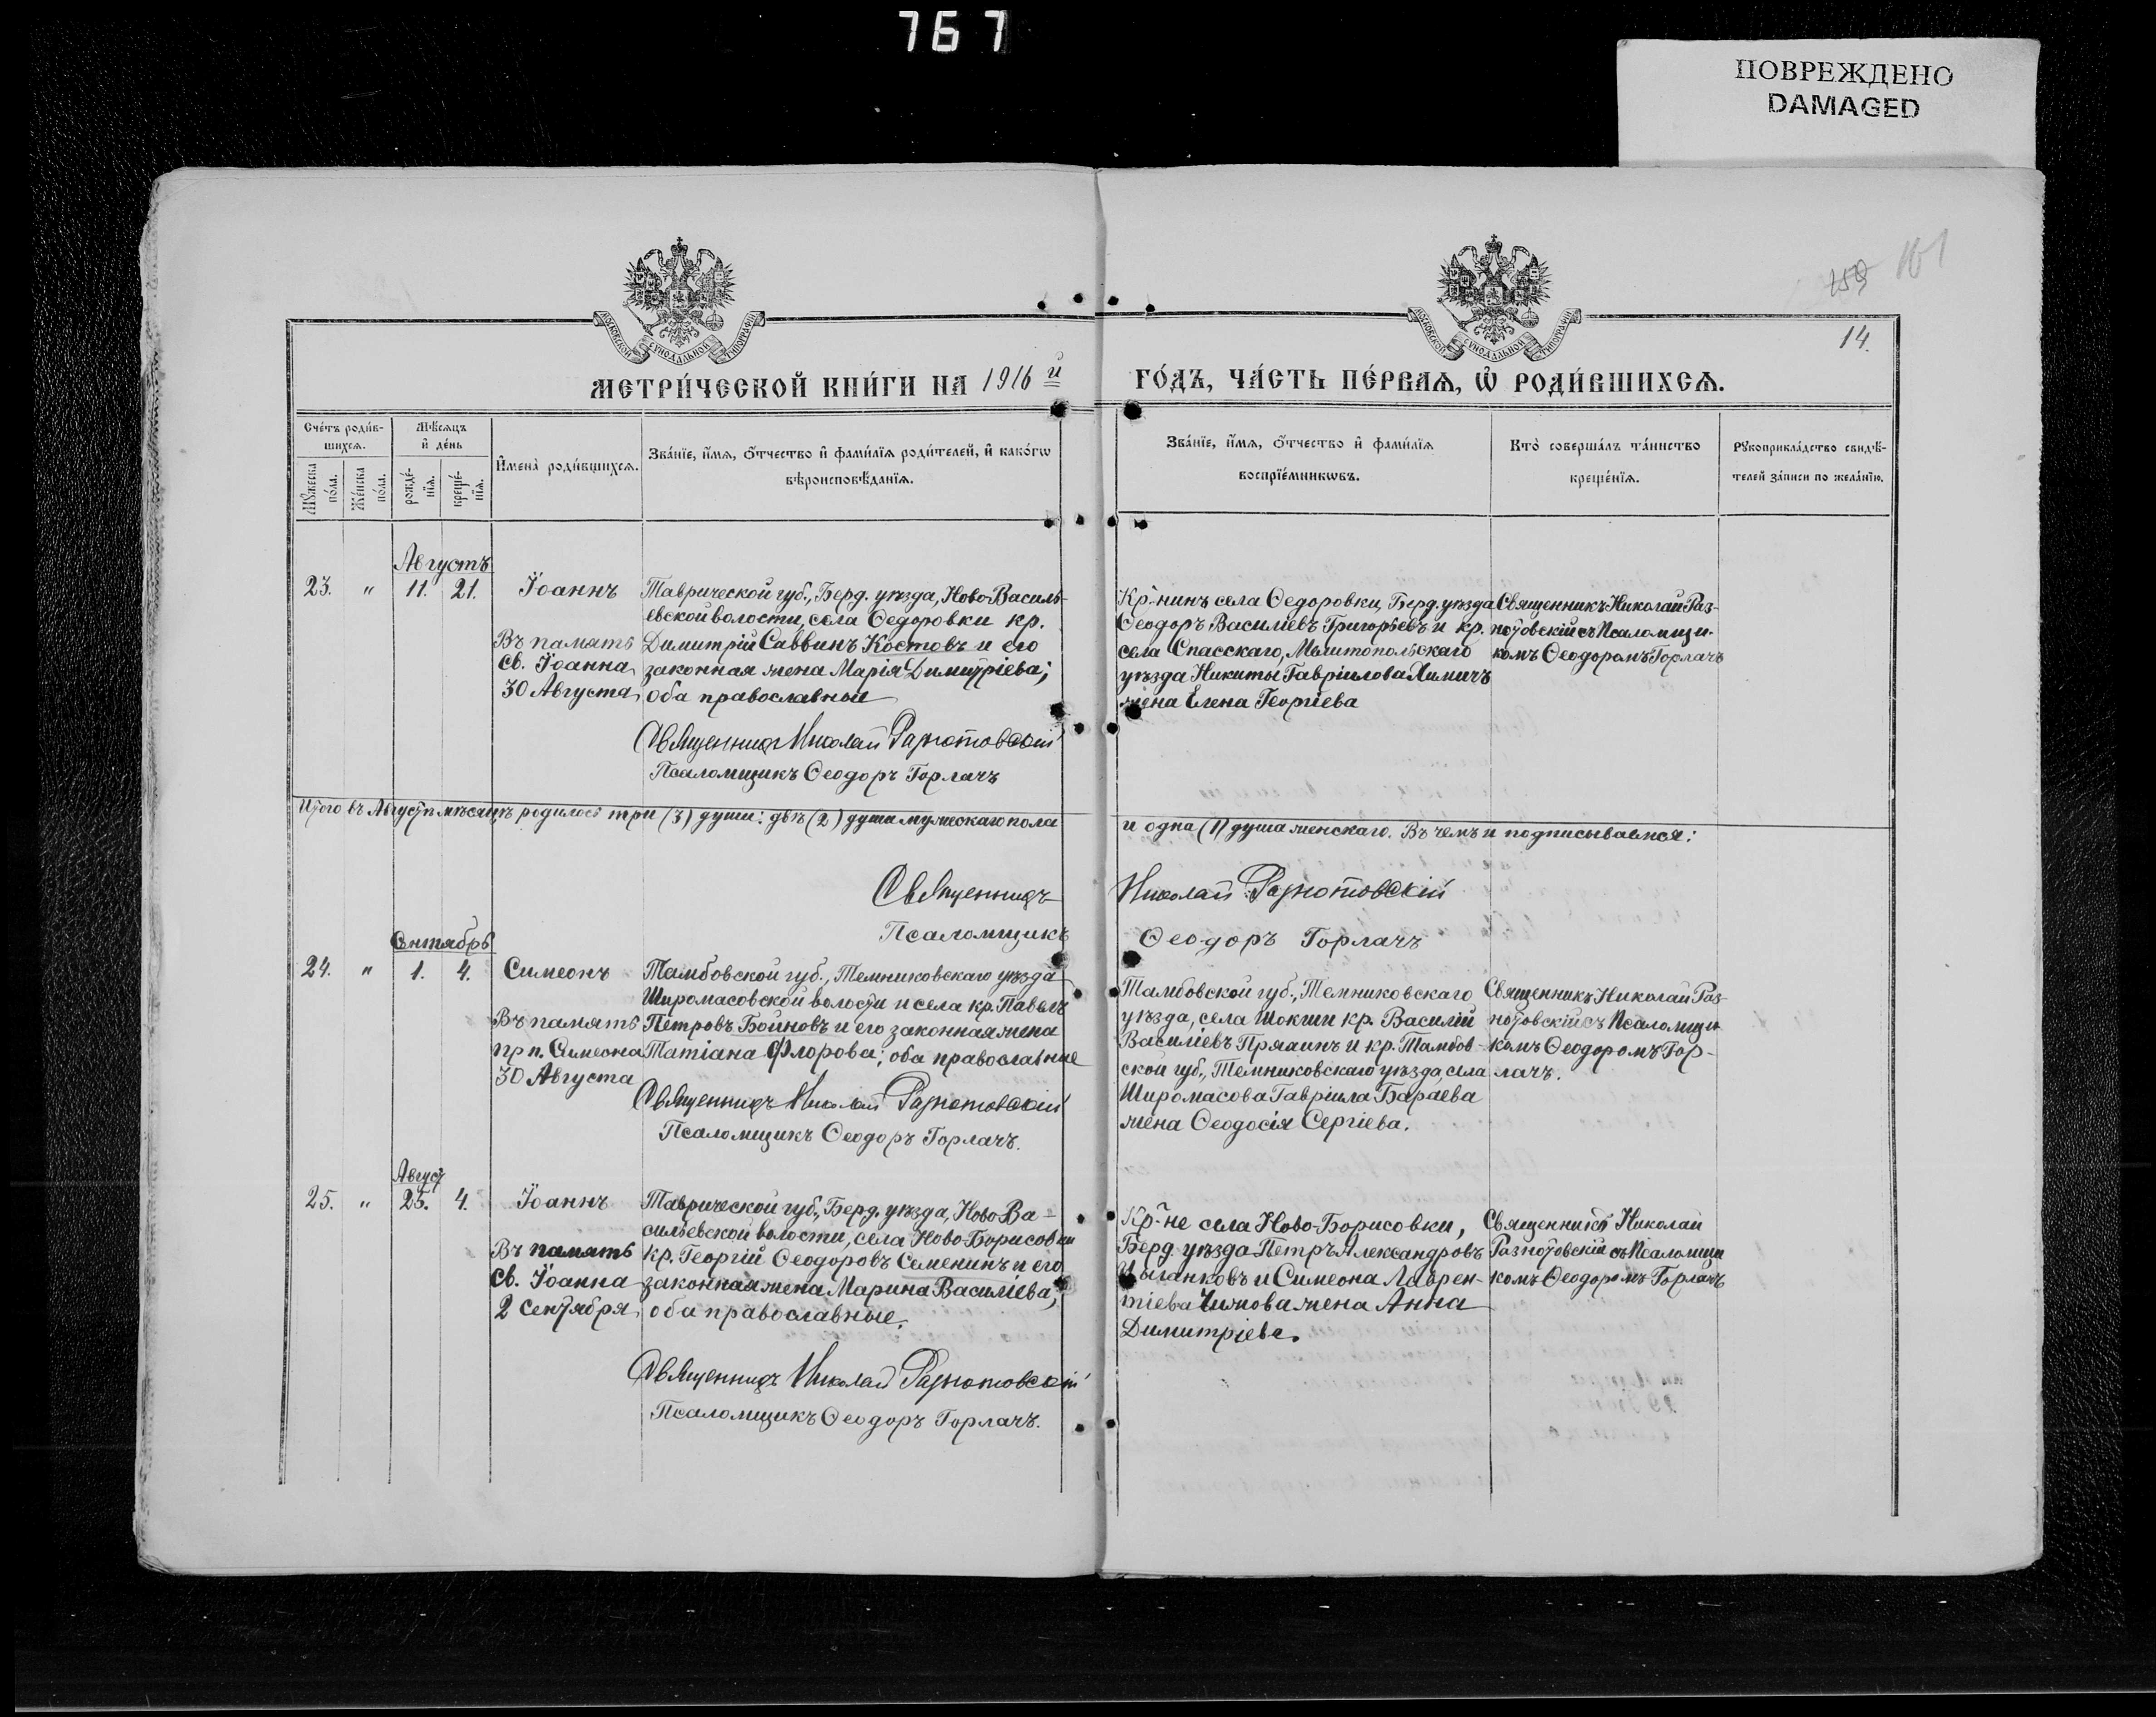 767
ПОВРЕЖДЕНО
DAMAGED
161
159
14.
МОСКОВСКОЙ СѴНОДАЛЬНОЙ ТИПОГРАФІИ
МОСКОВСКОЙ СѴНОДАЛЬНОЙ ТИПОГРАФІИ
МЕТРИ́ЧЕСКОЙ КНИ́ГИ НА 1916 й
ГО́ДЪ, ЧА́СТЬ ПЕ́РВАѦ, Ѡ҆ РОДИ́ВШИХСѦ.
Сче́тъ роди́в-
шихсѧ.
Мꙋ́жеска
по́ла.
Же́нска
по́ла.
Мѣ́сѧцъ
и҆ де́нь
рожде́-
нїѧ.
креще́-
нїѧ.
И҆мена̀ роди́вшихсѧ.
Зва́нїе, и҆́мѧ, ѻ҆́тчество и҆ фами́лїѧ роди́телей, и҆ како́гѡ
вѣроисповѣ́данїѧ.
Зва́нїе, и҆́мѧ, ѻ҆́тчество и҆ фами́лїѧ
воспрїе́мникѡвъ.
Кто̀ соверша́лъ та́инство
креще́нїѧ.
Рꙋкоприкла́дство свидѣ́-
телей за́писи по жела́нїю.
Августъ
23. " 11. 21. Іоаннъ
Въ память
св. Іоанна
30 Августа
Таврической губ., Берд. уѣзда, Ново-Василь-
евской волости, села Ѳедоровки кр.
Димитрій Саввинъ Костовъ и его
законная жена Марія Димитріева;
оба православные
Священникъ Николай Разнотовскій
Псаломщикъ Ѳеодоръ Горлачъ
Кр-нинъ села Ѳедоровки, Берд. уѣзда
Ѳеодоръ Василіевъ Григорьевъ и кр.
села Спасскаго, Мелитопольскаго
уѣзда Никиты Гавріилова Химичъ
жена Елена Георгіева
Священникъ Николай Раз-
нотовскій съ Псаломщи-
комъ Ѳеодоромъ Горлачъ
Итого въ Августѣ мѣсяцѣ родилось три (3) души: двѣ (2) души мужескаго пола
и одна (1) душа женскаго. Въ чемъ и подписываемся:
Священникъ Николай Разнотовскій
Псаломщикъ Ѳеодоръ Горлачъ
Сентябрь
24. " 1. 4. Симеонъ
Въ память
прп. Симеона
30 Августа
Тамбовской губ., Темниковскаго уѣзда
Широмасовской волости и села кр. Павелъ
Петровъ Бойновъ и его законная жена
Татіана Флорова; оба православные
Священникъ Николай Разнотовскій
Псаломщикъ Ѳеодоръ Горлачъ.
Тамбовской губ., Темниковскаго
уѣзда, села Шокши кр. Василій
Василіевъ Пряжинъ и кр. Тамбов-
ской губ., Темниковскаго уѣзда, села
Широмасова Гавріила Бараева
жена Ѳеодосія Сергіева.
Священникъ Николай Раз-
нотовскій съ Псаломщи-
комъ Ѳеодоромъ Гор-
лачъ.
Август
25. " 25. 4. Іоаннъ
Въ память
св. Іоанна
2 Сентября
Таврической губ., Берд. уѣзда, Ново-Ва-
сильевской волости, села Ново-Борисовки
кр. Георгій Ѳеодоровъ Семенинъ и его
законная жена Марина Василіева,
оба православные.
Священникъ Николай Разнотовскій
Псаломщикъ Ѳеодоръ Горлачъ.
Кр-не села Ново-Борисовки,
Берд. уѣзда Петръ Александровъ
Цыганковъ и Симеона Лаврен-
тіева Чижова жена Анна
Димитріева.
Священникъ Николай
Разнотовскій съ Псаломщи
комъ Ѳеодоромъ Горлачъ